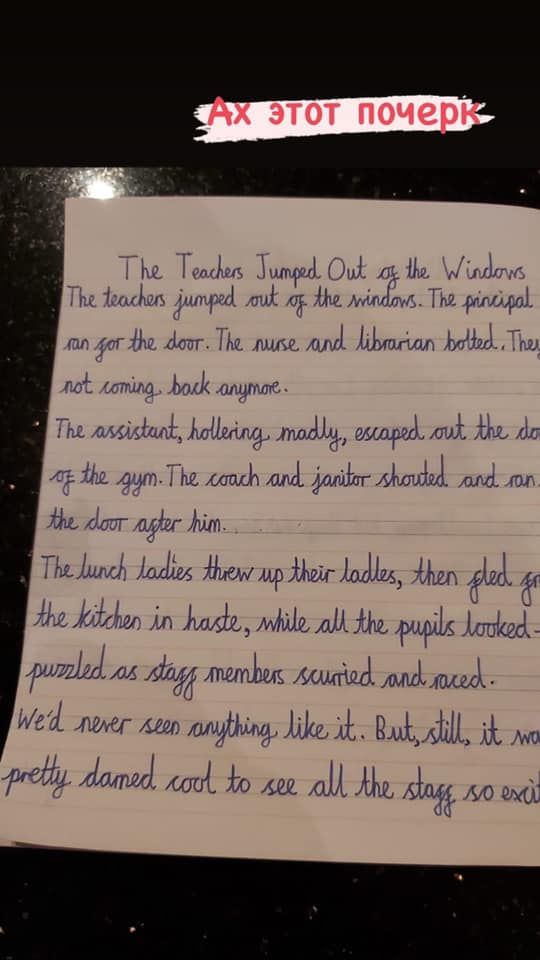 Ах этот почерк
The Teachers Jumped Out of the Windows
The teachers jumped out of the windows. The principal
ran for the door. The nurse and librarian bolted. They
not coming back anymore.
The assistant, hollering madly, escaped out the do
of the gym. The coach and janitor shouted and ran
the door after him.
The lunch ladies threw up their ladles, then fled fr
the kitchen in haste, while all the pupils looked-
puzzled as staff members scurried and raced.
We'd never seen anything like it. But, still, it wa
pretty darned cool to see all the staff so excit